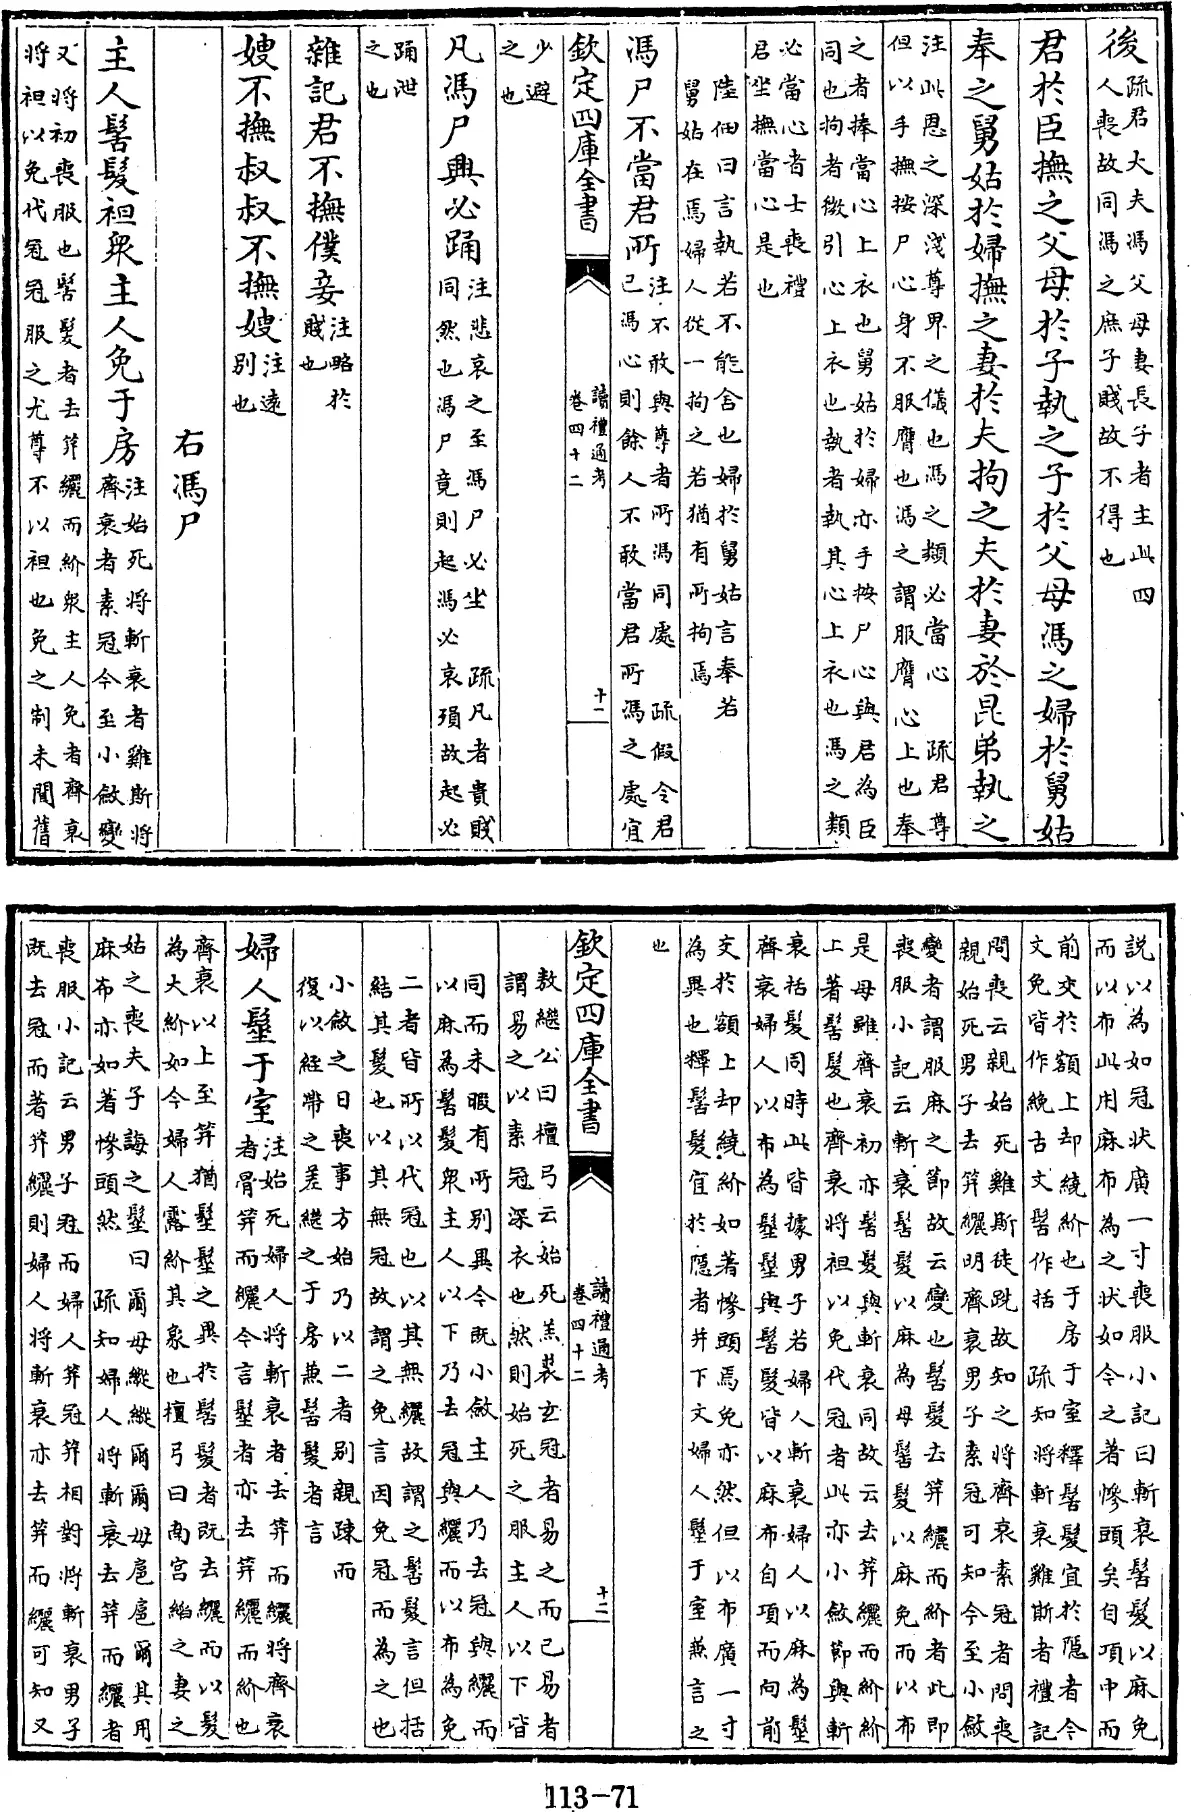 後疏君大夫馮父母妻長子者主此四人喪故同馮之庶子賤故不得也
君於臣撫之父母於子執之子於父母馮之婦於舅姑
奉之舅姑於婦撫之妻於夫拘之夫於妻於昆弟執之
注此恩之深淺尊卑之儀也馮之類必當心 疏君尊
但以手撫按尸心身不服膺也馮之謂服膺心上也奉
之者捧當心上衣也舅姑於婦亦手按尸心與君為臣
同也拘者微引心上衣也執者執其心上衣也馮之類
必當心者士喪禮
君坐撫當心是也
陸佃曰言執若不能舍也婦於舅姑言奉若
舅姑在焉婦人從一拘之若猶有所拘焉
馮尸不當君所注不敢與尊者所馮同處 疏假令君已馮心則餘人不敢當君所馮之處宜
欽定四庫全書 讀禮通考 卷四十二 十一
少避
之也
凡馮尸興必踊注悲哀之至馮尸必坐 疏凡者貴賤同然也馮尸竟則起馮必哀殞故起必
踊泄
之也
雜記君不撫僕妾注略於賤也
嫂不撫叔叔不撫嫂注遠別也
右馮尸
主人髺髮袒衆主人免于房注始死將斬衰者雞斯將齊衰者素冠今至小斂變
又將初喪服也髺髮者去笄纚而紒衆主人免者齊衰
將袒以免代冠冠服之尤尊不以袒也免之制未聞舊
說以為如冠狀廣一寸喪服小記曰斬衰髺髮以麻免
而以布此用麻布為之狀如今之著幓頭矣自項中而
前交於額上却繞紒也于房于室釋髺髮宜於隱者今
文免皆作絻古文髺作括 疏知將斬衰雞斯者禮記
問喪云親始死雞斯徒跣故知之將齊衰素冠者問喪
親始死男子去笄纚明齊衰男子素冠可知今至小斂
變者謂服麻之節故云變也髺髮去笄纚而紒者此即
喪服小記云斬衰髺髮以麻為母髺髮以麻免而以布
是母雖齊衰初亦髺髮與斬衰同故云去笄纚而紒紒
上著髺髮也齊衰將袒以免代冠者此亦小斂節與斬
衰括髮同時此皆據男子若婦人斬衰婦人以麻為髽
齊衰婦人以布為髽髽與髺髮皆以麻布自項而向前
交於額上却繞紒如著幓頭焉免亦然但以布廣一寸
為異也釋髺髮宜於隱者并下文婦人髽于室兼言之
也
欽定四庫全書 讀禮通考 卷四十二 十二
敖繼公曰檀弓云始死羔裘玄冠者易之而已易者
謂易之以素冠深衣也然則始死之服主人以下皆
同而未暇有所別異今既小斂主人乃去冠與纚而
以麻為髺髮衆主人以下乃去冠與纚而以布為免
二者皆所以代冠也以其無纚故謂之髺髮言但括
結其髮也以其無冠故謂之免言因免冠而為之也
小斂之日喪事方始乃以二者別親疎而
復以絰帶之差繼之于房兼髺髮者言
婦人髽于室注始死婦人將斬衰者去笄而纚將齊衰者骨笄而纚今言髽者亦去笄纚而紒也
齊衰以上至笄猶髽髽之異於髺髮者既去纚而以髮
為大紒如今婦人露紒其象也檀弓曰南宮縚之妻之
姑之喪夫子誨之髽曰爾毋縱縱爾爾毋扈扈爾其用
麻布亦如著幓頭然 疏知婦人將斬衰去笄而纚者
喪服小記云男子冠而婦人笄冠笄相對將斬衰男子
既去冠而著笄纚則婦人將斬衰亦去笄而纚可知又
113-71